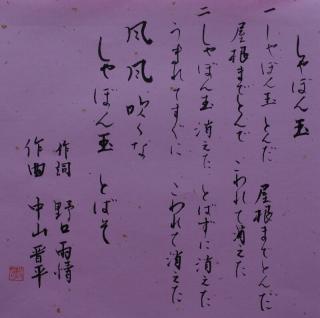 しゃぼん玉
一 しゃぼん玉 とんだ 屋根までとんだ
屋根までとんで こわれて消えた
二 しゃぼん玉 消えた とばずに消えた
うまれてすぐに こわれて消えた
風 風 吹くな
しゃぼん玉 とばそ
作詞 野口雨情
作曲 中山晋平